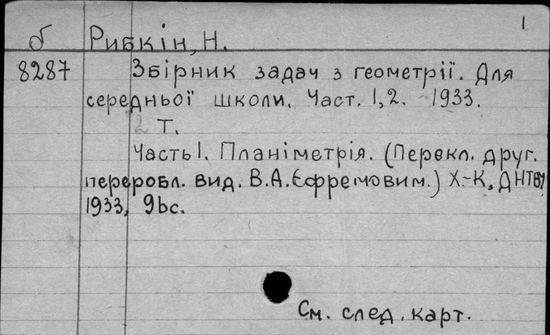 1
б Рибкін, Н.
8287 Збірник задач з геометрії. Для
середньої школи. Част. 1, 2. 1933.
2 Т.
Часть 1. Планіметрія. (Перекл. друг.
переробл. вид. В.А. Єфремовим.) Х.-К., ДНТВУ
1933, 96с.
См. след. карт.